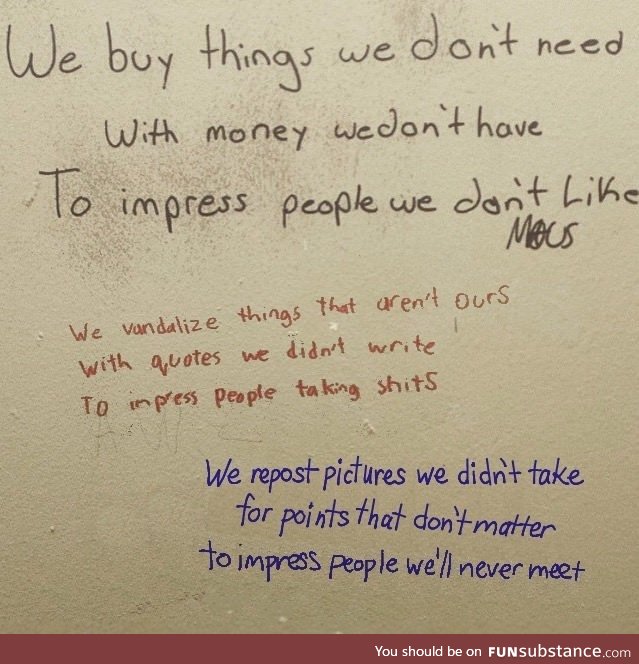 We buy things we don't need
With money we don't have
To impress people we don't Like
We vandalize things that aren't ours
With quotes we didn't write
To impress people taking shits
We repost pictures we didn't take
for points that don't matter
to impress people we'll never meet
You should be on FUNsubstance.com